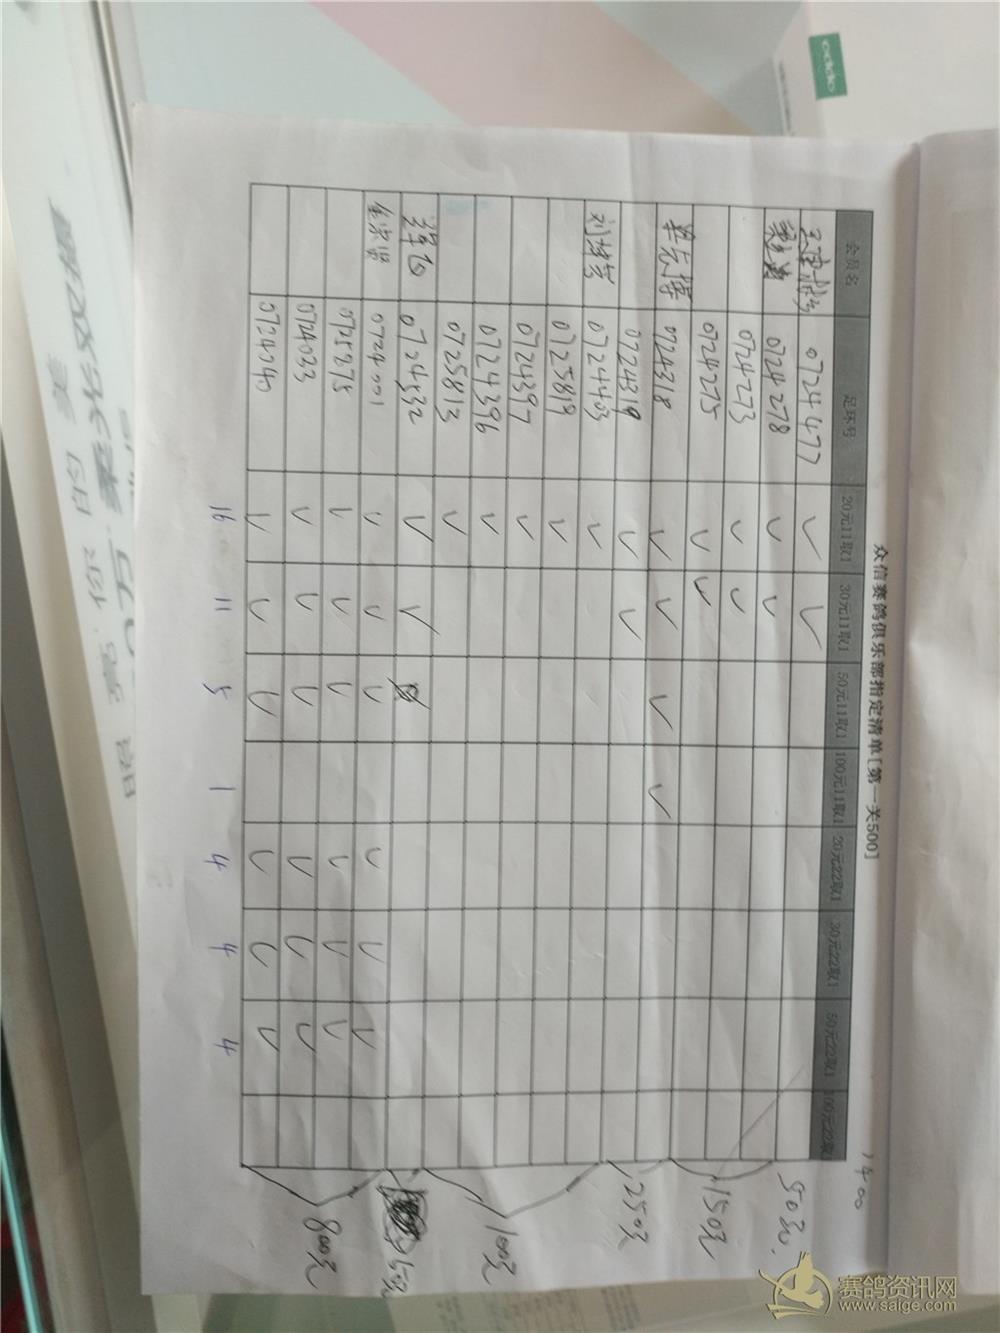 众信赛鸽俱乐部指定清单[第一关500]
1400
会员名 足环号 20元11取1 30元11取1 50元11取1 100元11取1 20元22取1 30元22取1 50元22取1 100元22取1
0724477 ✓ ✓ 50元
0724278 ✓ ✓
0724273 ✓ ✓ 150元
0724275 ✓ ✓
0724318 ✓ ✓ ✓ ✓ 250元
0724319 ✓ ✓
0724403 ✓
0725819 ✓ 100元
0724397 ✓
0724396 ✓
0725813 ✓
0724532 ✓ ✓ 50元
0724001 ✓ ✓ ✓ ✓ ✓ ✓
0725275 ✓ ✓ ✓ ✓ ✓ ✓ 800元
0724033 ✓ ✓ ✓ ✓ ✓ ✓
0724040 ✓ ✓ ✓ ✓ ✓ ✓
16 11 5 1 4 4 4
oppo
赛鸽资讯网
www.saige.com